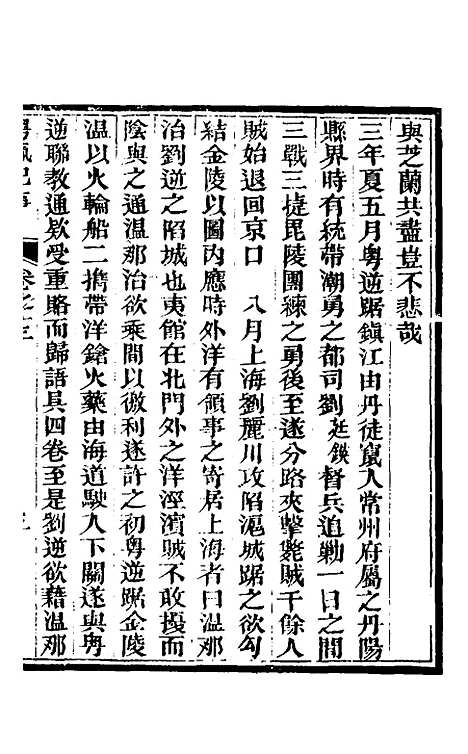 與芝蘭共盡豈不悲哉
三年夏五月粵逆踞鎮江由丹徒竄入常州府屬之丹陽
縣界時有統帶潮勇之都司劉廷鍈督兵追勦一日之間
三戰三捷毘陵團練之勇後至遂分路夾擊斃賊千餘人
賊始退回京口　八月上海劉麗川攻陷滬城踞之欲勾
結金陵以圖內應時外洋有領事之寄居上海者曰溫那
治劉逆之陷城也夷館在北門外之洋涇濱賊不敢擾而
陰與之通溫那治欲乘間以徼利遂許之初粵逆踞金陵
溫以火輪船二擕帶洋鎗火藥由海道駛入下關遂與粵
逆聯教通欵受重賂而歸語具四卷至是劉逆欲藉溫那
卷之三